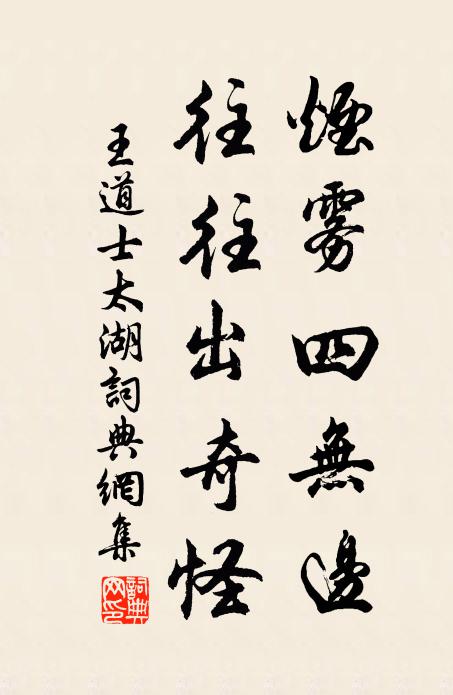 煙雾四無邊
往往出奇怪
王道士太湖詞典網集
詞典网印